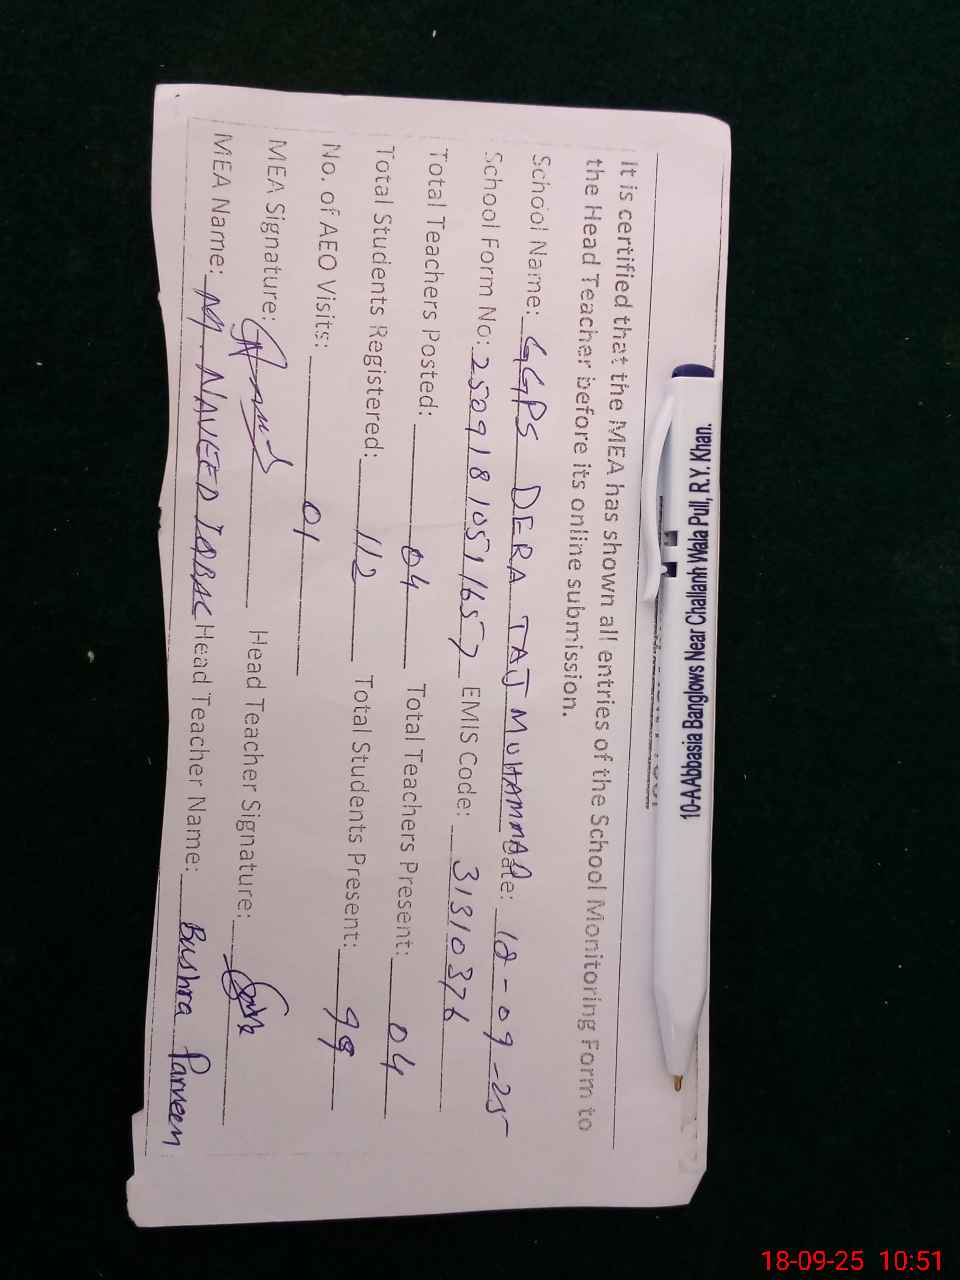 10-A Abbasia Banglows Near Challanh Wala Pull, R.Y. Khan.
It is certified that the MEA has shown all entries of the School Monitoring Form to
the Head Teacher before its online submission.
School Name: GGPS DERA TAJ MUHAMMAD Date: 18-09-25
School Form No: 2509181051657 EMIS Code: 31310376
Total Teachers Posted: 04 Total Teachers Present: 04
Total Students Registered: 112 Total Students Present: 99
No. of AEO Visits: 01
MEA Signature: Head Teacher Signature:
MEA Name: M. NAVEED IQBAL Head Teacher Name: Bushra Parveen
18-09-25 10:51